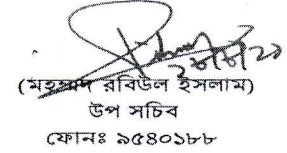 (মহম্মদ রবিউল ইসলাম)
উপ সচিব
ফোনঃ ৯৫৪০১৮৮